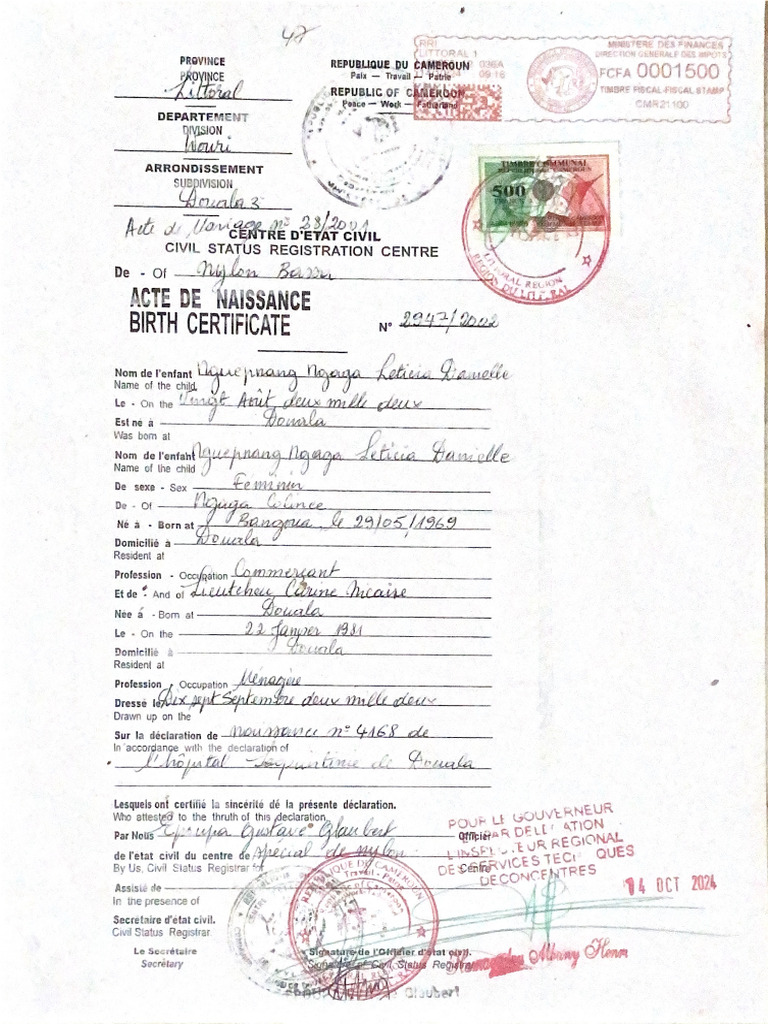 47
PROVINCE
PROVINCE
Littoral
DEPARTEMENT
DIVISION
Wouri
ARRONDISSEMENT
SUBDIVISION
Douala 3
REPUBLIQUE DU CAMEROUN
Paix — Travail — Patrie
REPUBLIC OF CAMEROON
Peace — Work — Fatherland
RRI
LITTORAL 1
036A
09:16
MINISTERE DES FINANCES
DIRECTION GENERALE DES IMPOTS
FCFA 0001500
TIMBRE FISCAL-FISCAL STAMP
CMR21100
TIMBRE COMMUNAL
500
FRANCS
LITTORAL REGION
REGION DU LITTORAL
Acte de Mariage n° 23/2001
CENTRE D'ETAT CIVIL
CIVIL STATUS REGISTRATION CENTRE
De - Of Nylon Bassa
ACTE DE NAISSANCE
BIRTH CERTIFICATE
N° 2947/2002
Nom de l'enfant Nguepnang Ngaga Leticia Danielle
Name of the child
Le - On the Vingt Août deux mille deux
Est né à Douala
Was born at
Nom de l'enfant Nguepnang Ngaga Leticia Danielle
Name of the child
De sexe - Sex Féminin
De - Of Ngaga Colince
Né à - Born at Bangoua, le 29/05/1969
Domicilié à Douala
Resident at
Profession - Occupation Commerçant
Et de - And of Lieutcheu Carine Nicaise
Née à - Born at Douala
Le - On the 22 Janvier 1981
Domicilié à Douala
Resident at
Profession, Occupation Ménagère
Dressé le Dix sept Septembre deux mille deux
Drawn up on the
Sur la déclaration de naissance n° 4168 de
In accordance with the declaration of
l'hôpital Laquintinie de Douala
Lesquels ont certifié la sincérité dé la présente déclaration.
Who attested to the thruth of this declaration
Par Nous Epoupa Gustave Glaubert Officier
de l'état civil du centre de spécial de nylon
By Us, Civil Status Registrar for Centre
Assisté de
In the presence of
Secrétaire d'état civil.
Civil Status Registrar.
POUR LE GOUVERNEUR
ET PAR DELEGATION
L'INSPECTEUR REGIONAL
DES SERVICES TECHNIQUES
DECONCENTRES
14 OCT 2024
REPUBLIQUE DU CAMEROUN
Travail - Patrie
Le Secrétaire
Secretary
Signature de l'Officier d'état civil.
Signature of Civil Status Registrar
Glaubert